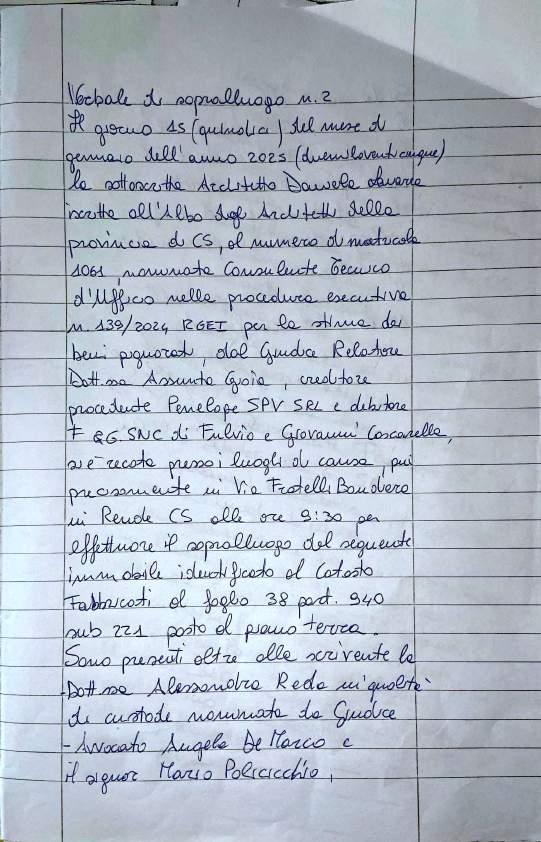 Verbale di sopralluogo n. 2
Il giorno 15 (quindici) del mese di
gennaio dell'anno 2025 (duemilaventicinque)
la sottoscritta Architetto Daniela
iscritta all'Albo degli Architetti della
provincia di CS, al numero di matricola
1061, nominata Consulente Tecnico
d'Ufficio nella procedura esecutiva
n. 139/2024 RGEI per la stima dei
beni pignorati, dal Giudice Relatore
Dott.ssa Assunta Gioia, creditore
procedente Penelope SPV SRL e debitore
F &G. SNC di Fulvio e Giovanni Coscarella,
si è recata presso i luoghi di causa, più
precisamente in Via Fratelli Bandiera
in Rende CS alle ore 9:30 per
effettuare il sopralluogo del seguente
immobile identificato al Catasto
Fabbricati al foglio 38 part. 940
sub 221 posto al piano terra.
Sono presenti oltre alla scrivente la
- Dott.ssa Alessandra Reda in qualità
di custode nominata da Giudice
- Avvocato Angela De Marco e
il signor Mario Policicchio,